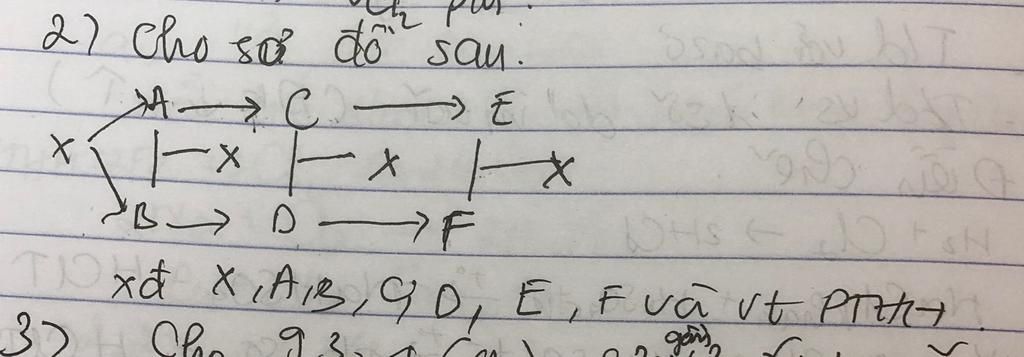 Cl₂ pư.
2) Cho sơ đồ sau:
A → C → E
X |— X |— X |— X
B → D → F
xđ X, A, B, C, D, E, F và vt PTHH.
3) Cho 9,3